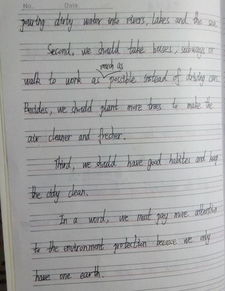 No. Date
pouring dirty water into rivers, lakes and the sea.
Second, we should take busses, subways or
much as
walk to work as possible instead of driving cars.
Besides, we should plant more trees to make the
air cleaner and fresher.
Third, we should have good habites and keep
the city clean.
In a word, we must pay more attention
to the environment protection because we only
have one earth.